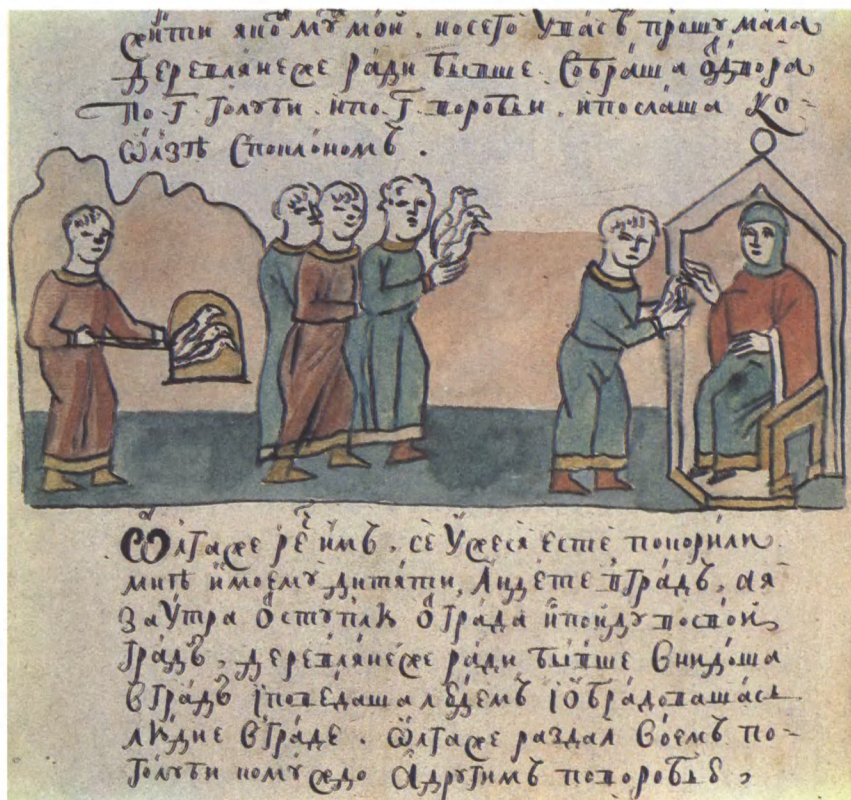 жити якоⷤ мꙋⷤ мой. но сего ꙋ васъ прошꙋ мала
Деревлянеже ради бывше. Собраша Ѿдвора
по г҃ голуби. ипо г҃ воробьи. ипослаша ко-
Ѡлзѣ Споклономъ.
Ѡлгаже реⷱ имъ, се ꙋжеся есте покорили
мнѣ имоемꙋ дитяти, Аидете вградъ, ая
заꙋтра Ѿступлю Ѿграда ипоидꙋ восвой
градъ, деревлянеже ради бывше внидоша
вградъ iповедаша людемъ iобрадовашась
людие вграде. Ѡлгаже раздая воемъ по-
голуби комуждо Адругимъ поворобью,